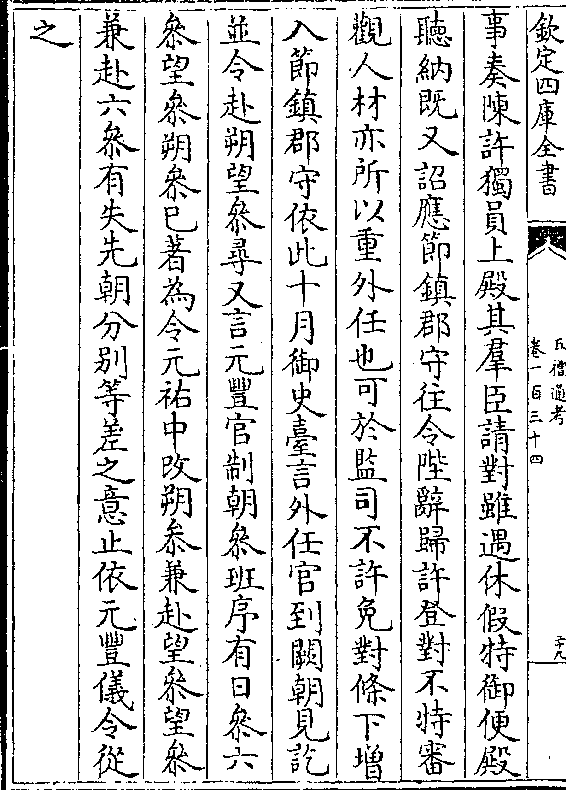 欽定四庫全書
五禮通考
卷一百三十四
二十九
事奏陳許獨員上殿其羣臣請對雖遇休假特御便殿
聽納既又詔應節鎮郡守往令陛辭歸許登對不特審
觀人材亦所以重外任也可於監司不許免對條下增
入節鎮郡守依此十月御史臺言外任官到闕朝見訖
並令赴朔望參尋又言元豐官制朝參班序有日參六
參望參朔參已著為令元祐中改朔參兼赴望參望參
兼赴六參有失先朝分别等差之意止依元豐儀令從
之